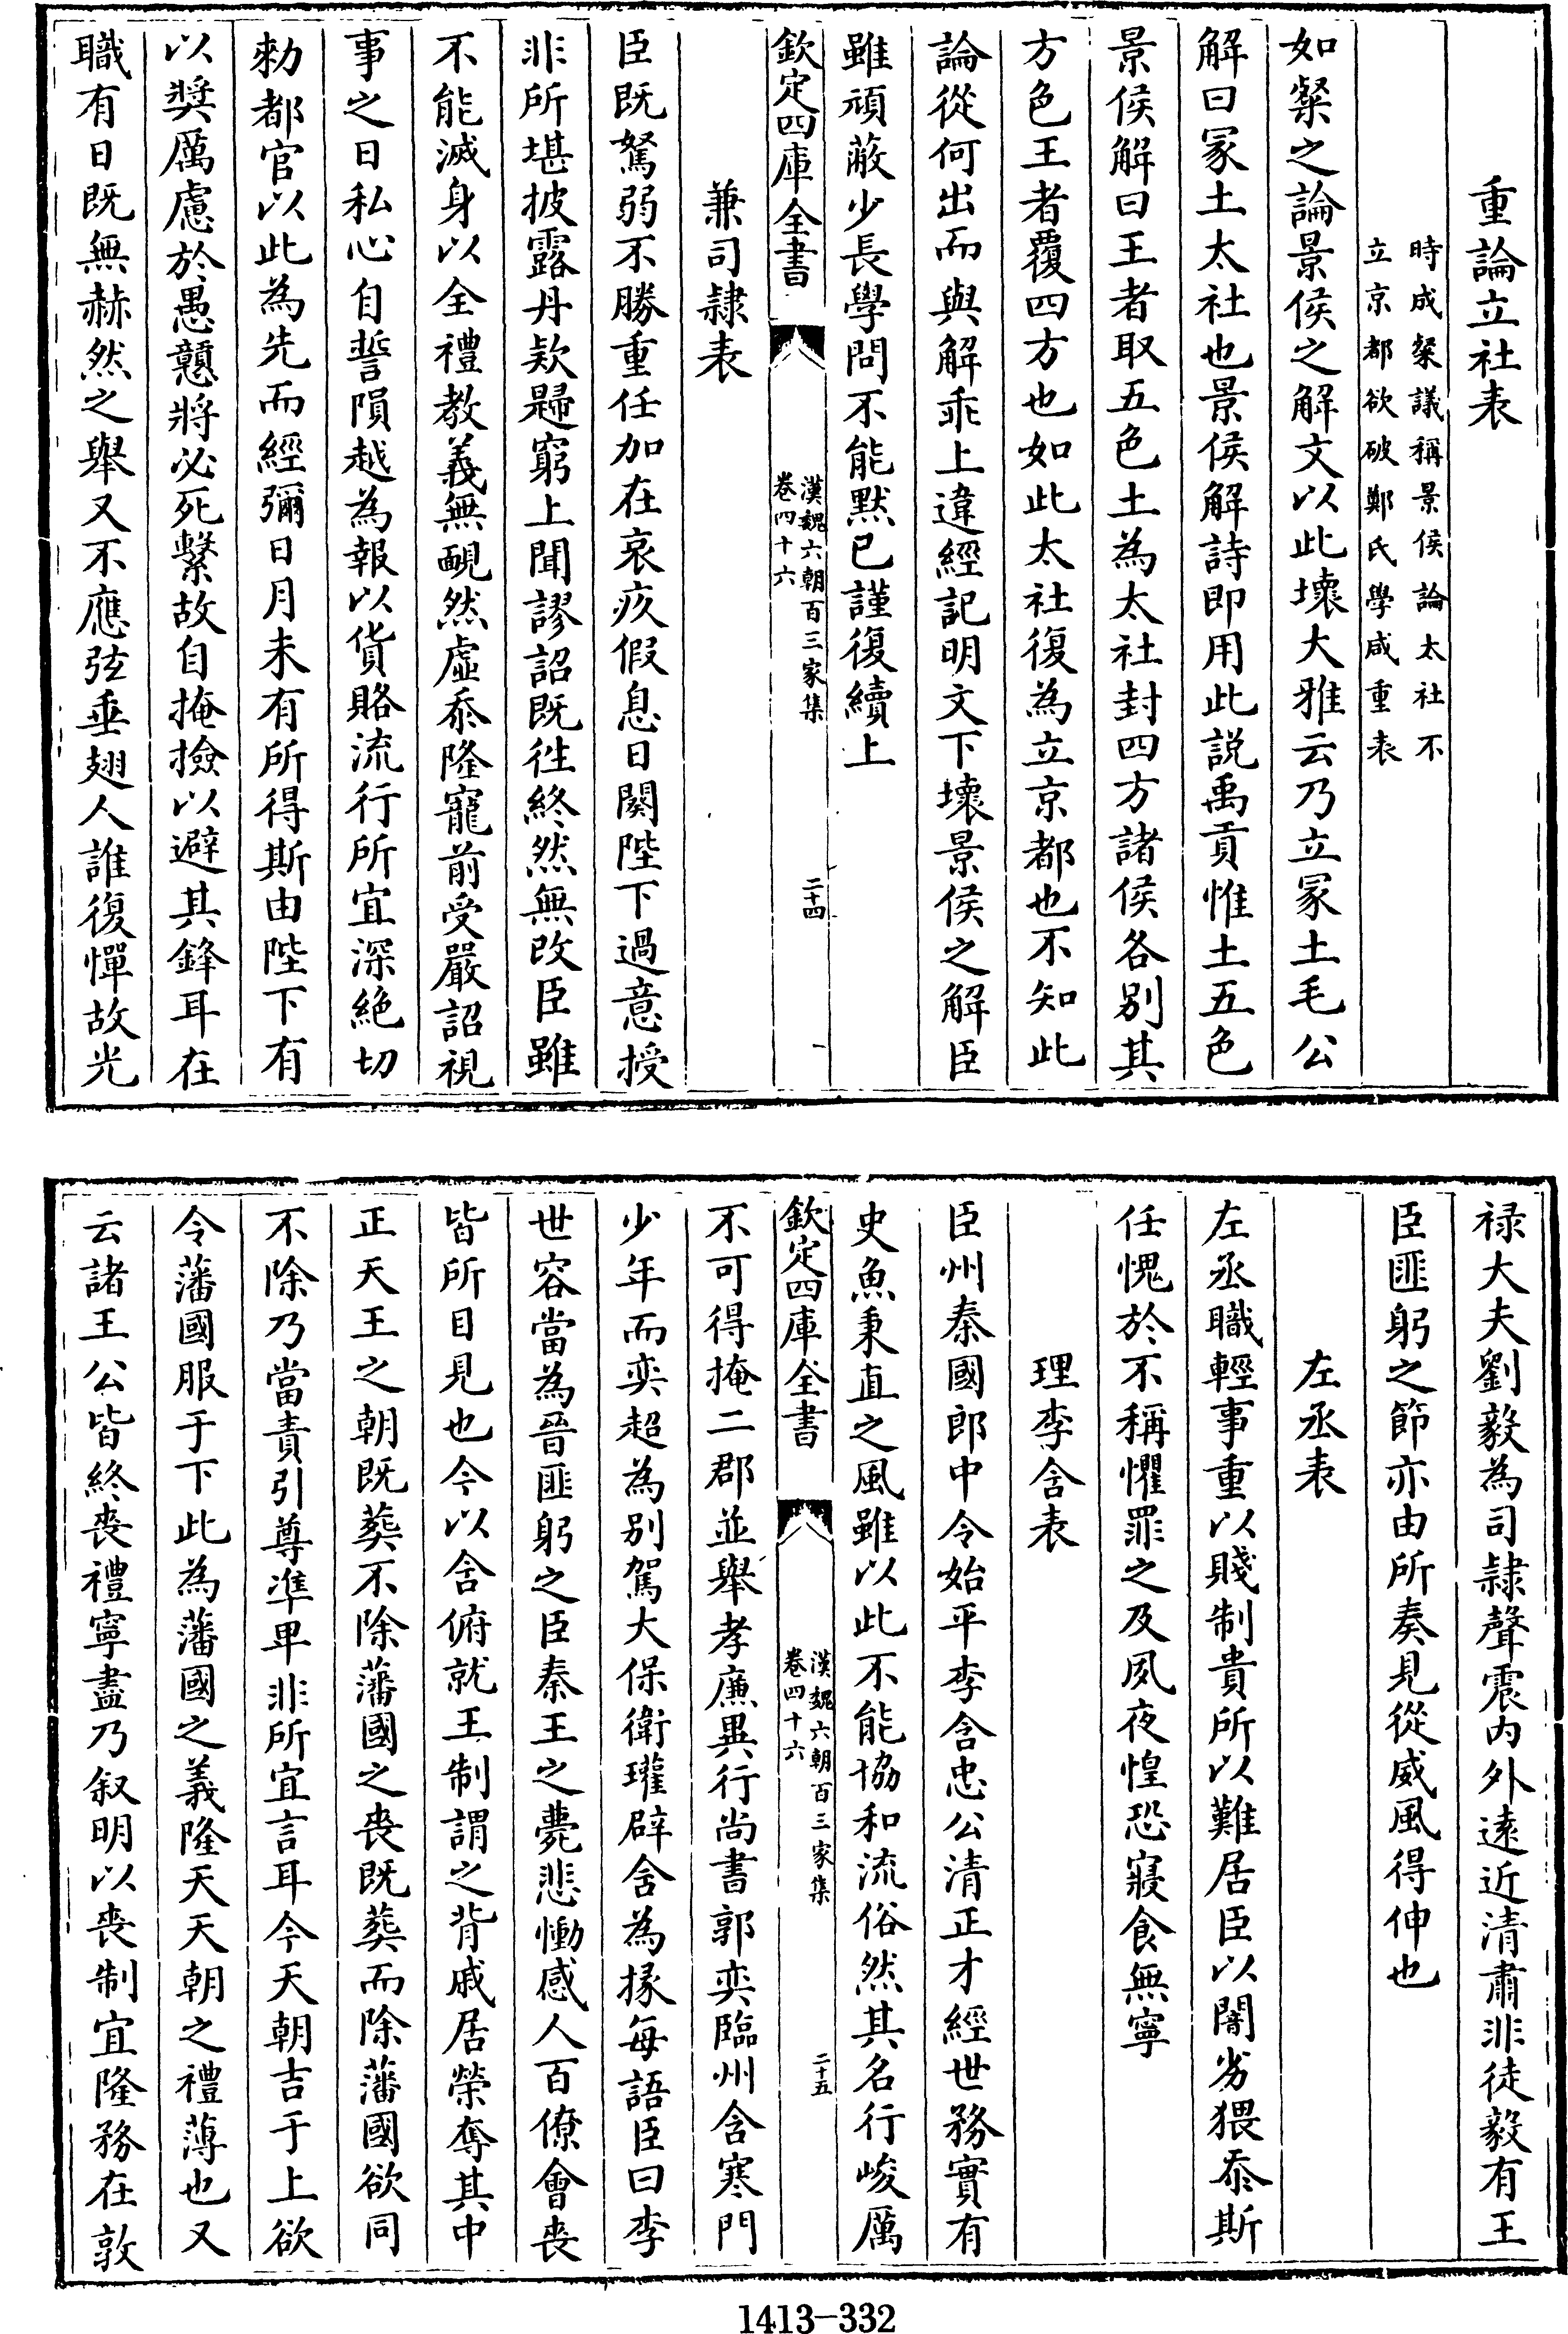 重論立社表
時成粲議稱景侯論太社不
立京都欲破鄭氏學咸重表
如粲之論景侯之解文以此壞大雅云乃立冡土毛公
解曰冡土太社也景侯解詩即用此説禹貢惟土五色
景侯解曰王者取五色土為太社封四方諸侯各别其
方色王者覆四方也如此太社復為立京都也不知此
論從何出而與解乖上違經記明文下壞景侯之解臣
雖頑蔽少長學問不能黙已謹復續上
欽定四庫全書
漢魏六朝百三家集
卷四十六
二十四
兼司隷表
臣既駑弱不勝重任加在哀疚假息日闋陛下過意授
非所堪披露丹欵歸窮上聞謬詔既徃終然無改臣雖
不能滅身以全禮教義無靦然虛忝隆寵前受嚴詔視
事之日私心自誓隕越為報以貨賂流行所宜深絶切
勅都官以此為先而經彌日月未有所得斯由陛下有
以奬厲慮於愚戇將必死繫故自掩撿以避其鋒耳在
職有日既無赫然之舉又不應弦垂翅人誰復憚故光
禄大夫劉毅為司隷聲震内外逺近清肅非徒毅有王
臣匪躬之節亦由所奏見從威風得伸也
左丞表
左丞職輕事重以賤制貴所以難居臣以闇劣猥忝斯
任愧於不稱懼罪之及夙夜惶恐寢食無寧
理李含表
臣州秦國郎中令始平李含忠公清正才經世務實有
史魚秉直之風雖以此不能協和流俗然其名行峻厲
欽定四庫全書
漢魏六朝百三家集
卷四十六
二十五
不可得掩二郡並舉孝廉異行尚書郭奕臨州含寒門
少年而奕超為别駕大保衛瓘辟含為掾每語臣曰李
世容當為晉匪躬之臣秦王之薨悲慟感人百僚會喪
皆所目見也今以含俯就王制謂之背戚居榮奪其中
正天王之朝既葬不除藩國之喪既葬而除藩國欲同
不除乃當責引尊準卑非所宜言耳今天朝吉于上欲
令藩國服于下此為藩國之義隆天天朝之禮薄也又
云諸王公皆終喪禮寧盡乃叙明以喪制宜隆務在敦
1413-332